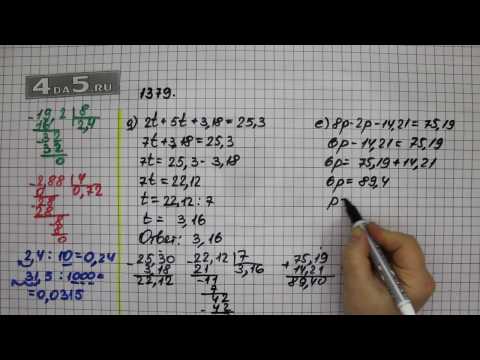 4DA5.RU
1379.
-19,2 | 8
16 | 2,4
-32
32
0
-2,88 | 4
0 | 0,72
-28
28
8
8
0
2,4 : 10 = 0,24
31,5 : 1000 =
= 0,0315
д) 2t + 5t + 3,18 = 25,3
7t + 3,18 = 25,3
7t = 25,3 - 3,18
7t = 22,12
t = 22,12 : 7
t = 3,16
Ответ: 3,16
-25,30
3,18
22,12
-22,12 | 7
21 | 3,16
-11
7
42
-42
е) 8p - 2p - 14,21 = 75,19
6p - 14,21 = 75,19
6p = 75,19 + 14,21
6p = 89,4
p
+75,19
14,21
89,40